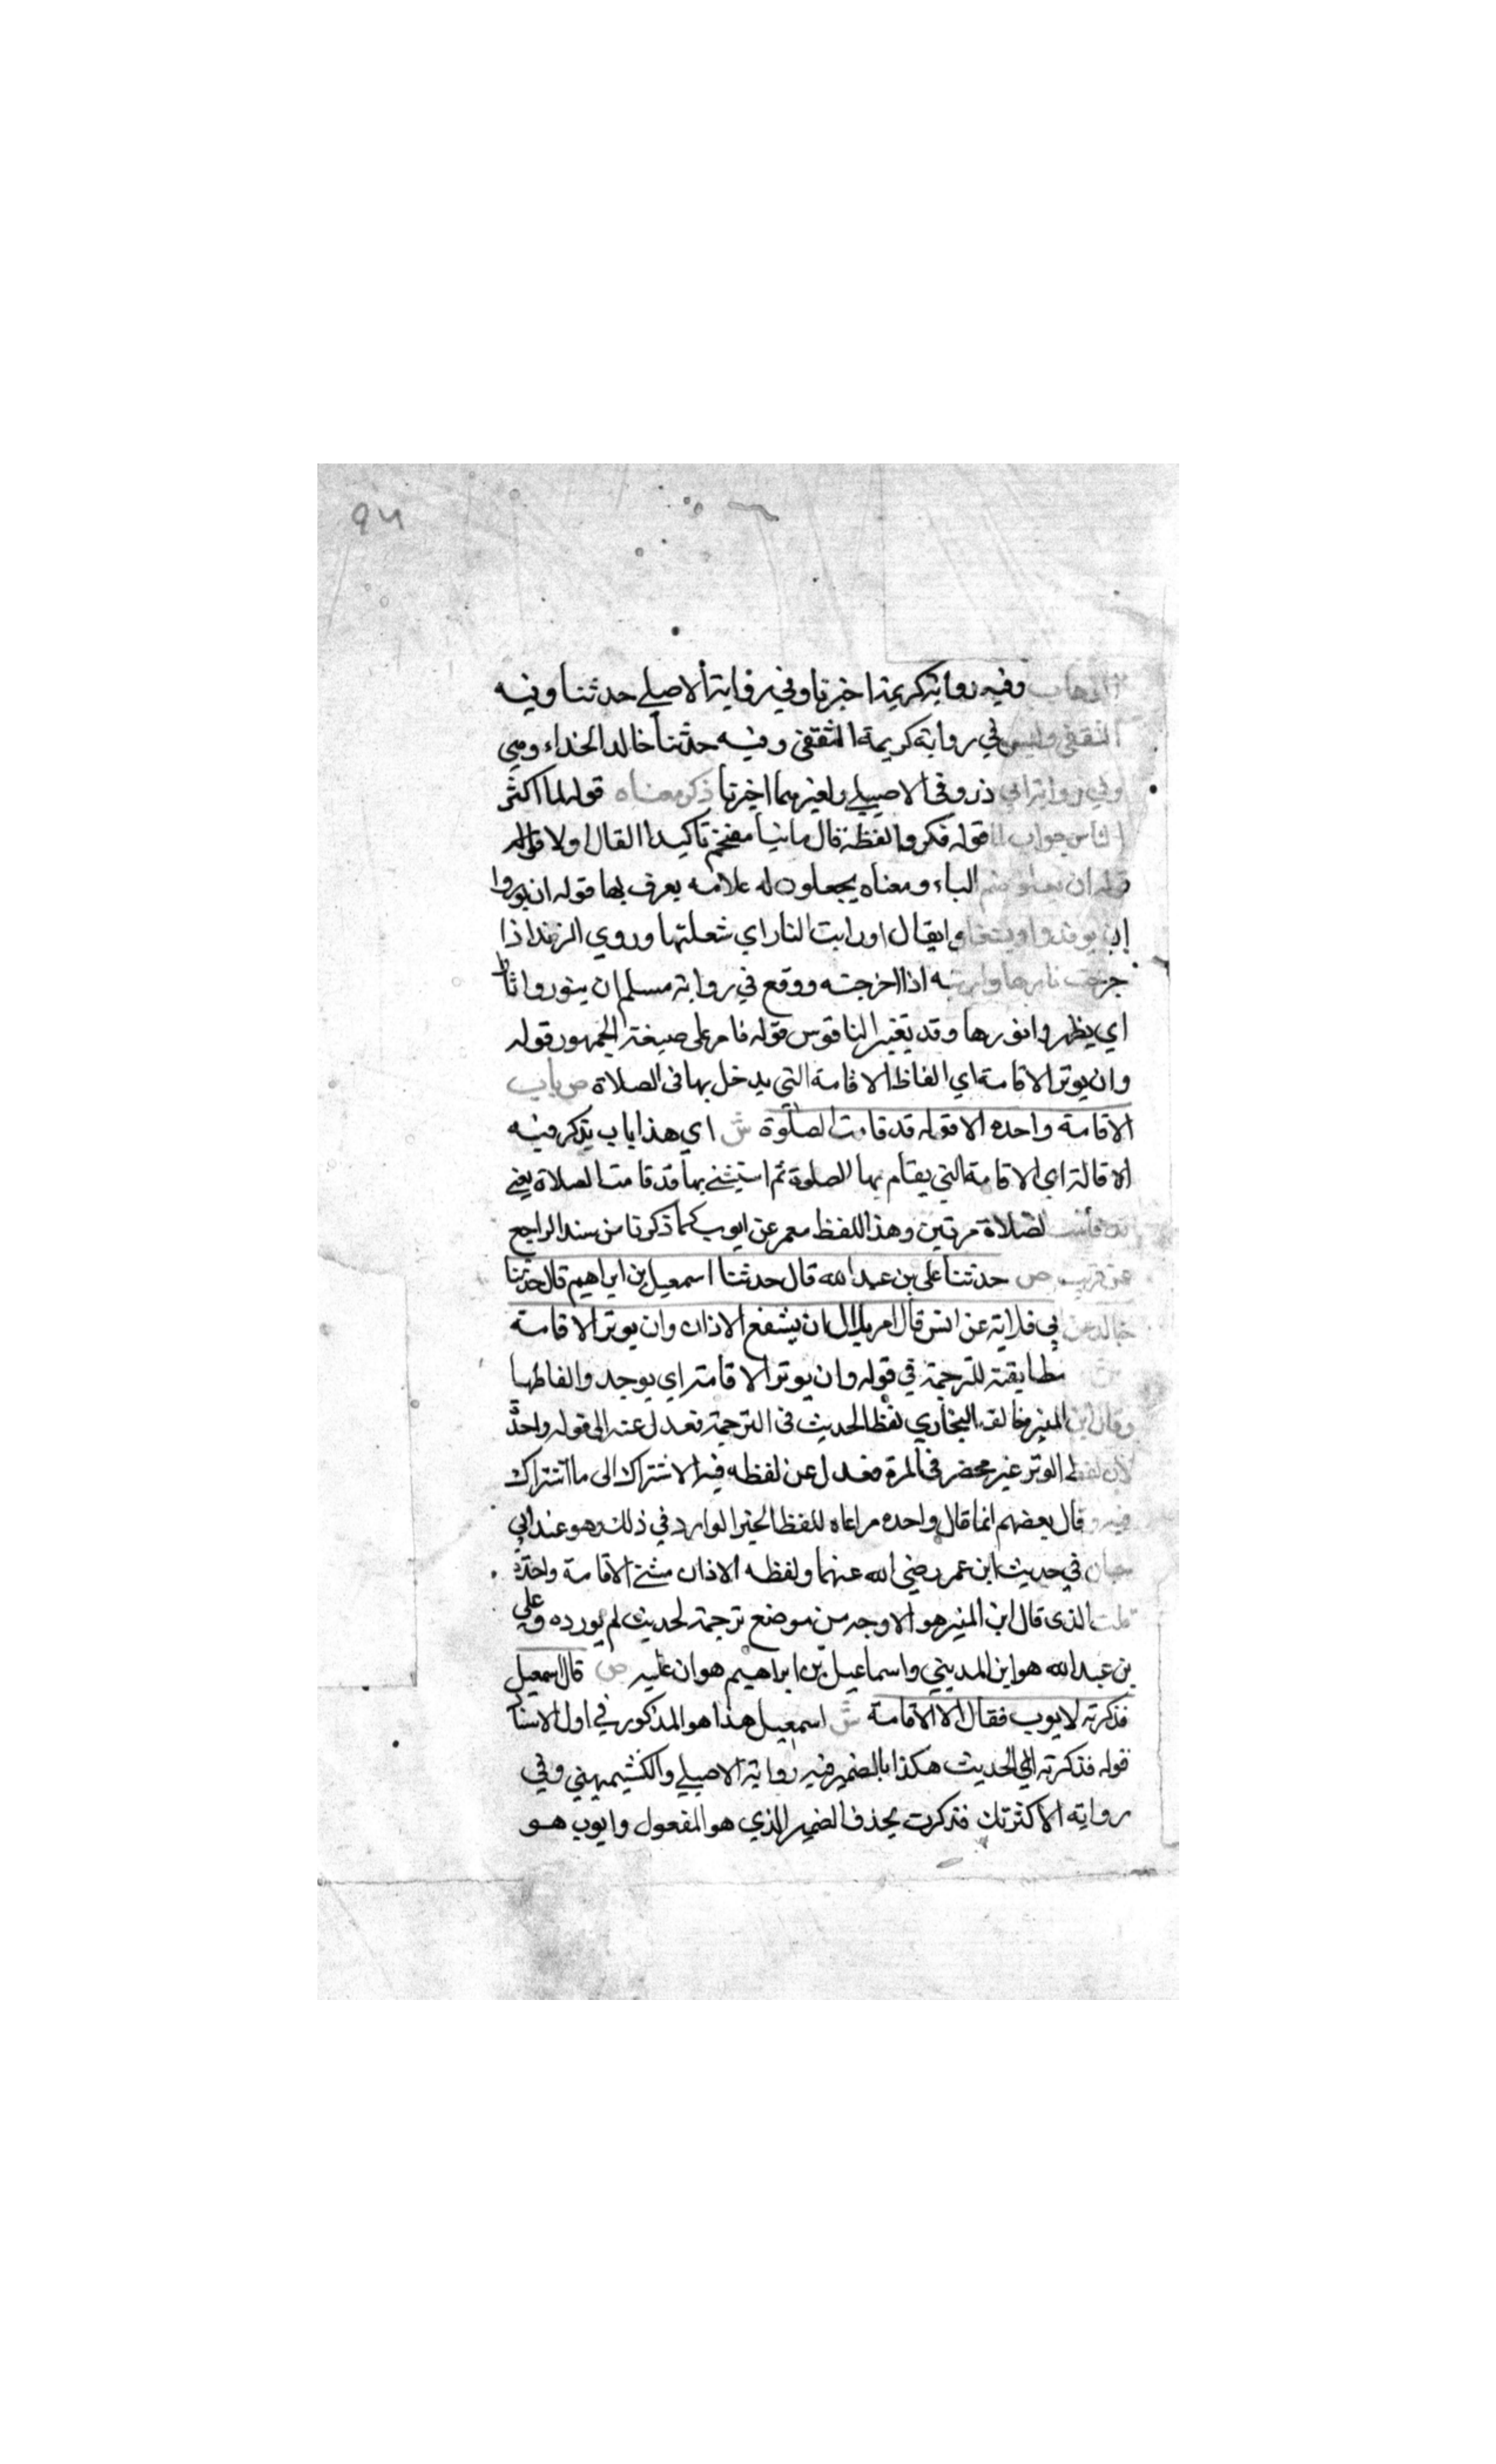 ٩٤
وفيه رواية كريمة اخبرنا وفي رواية الاصيلي حدثنا وفيه
الثقفي وليس في رواية كريمة الثقفي وفيه حدثنا خالد الحذاء وهي
وفي رواية ابي ذر وفي الاصيلي ولغيرهما اخبرنا ذكر معناه قوله لما اكثر
الناس جواب لما قوله فكروا لفظة قال مانيا مفخم تاكيدا لقال اولا قوله
قوله ان يعلو بضم الباء ومعناه يجعلون له علامه يعرف بها قوله ان يوروا
اي يوقدوا ويشعلوا يقال اوريت النار اي شعلتها وروي الزند اذا
خرجت نارها واريته اذا اخرجته ووقع في رواية مسلم ان ينوروا نارا
اي يظهروا نورها وقد تغير الناقوس قوله فامر على صيغة الجمهور قوله
وان يوتر الاقامة اي الفاظ الاقامة التي يدخل بها في الصلاة ص باب
الاقامة واحده الا قوله قد قامت الصلوة ش اي هذا باب يذكر فيه
الاقالة اي الاقامة التي يقام بها الصلوة ثم استثنى بها قد قامت الصلاة يعني
قد قامت لصلاة مرتين وهذا اللفظ معمر عن ايوب كما ذكرنا من سند الراجع
عن قريب ص حدثنا علي بن عبد الله قال حدثنا اسمعيل بن ابراهيم قال حدثنا
خالد عن ابي قلابة عن انس قال امر بلال ان يشفع الاذان وان يوتر الاقامة
ش مطابقته للترجمة في قوله وان يوتر الاقامة اي يوحد والفاظها
وقال ابن المنير خالف البخاري لفظ الحديث في الترجمة فعدل عنه الى قوله واحدة
لان لفظ الوتر غير محضر في المرة فعدل عن لفظه فيه الاشتراك الى ما اشتراك
فيه وقال بعضهم انما قال واحده مراعاه للفظ الخبر الوارد في ذلك وهو عند ابي
حبان في حديث ابن عمر رضي الله عنهما ولفظه الاذان مثنى الاقامة واحدة
قلت الذي قال ابن المنير هو الاوجه من موضع ترجمة لحديث لم يورده فيه وعلى
بن عبد الله هو ابن المديني واسماعيل بن ابراهيم هو ان عليه ص قال اسمعيل
فذكرته لايوب فقال الا الاقامة ش اسمعيل هذا هو المذكور في اول الاسناد
قوله فذكرته اي الحديث هكذا بالضمير فيه رواية الاصيلي والكشميهيني وفي
رواية الاكثر تك فذكرت بحذف الضمير الذي هو المفعول وايوب هو